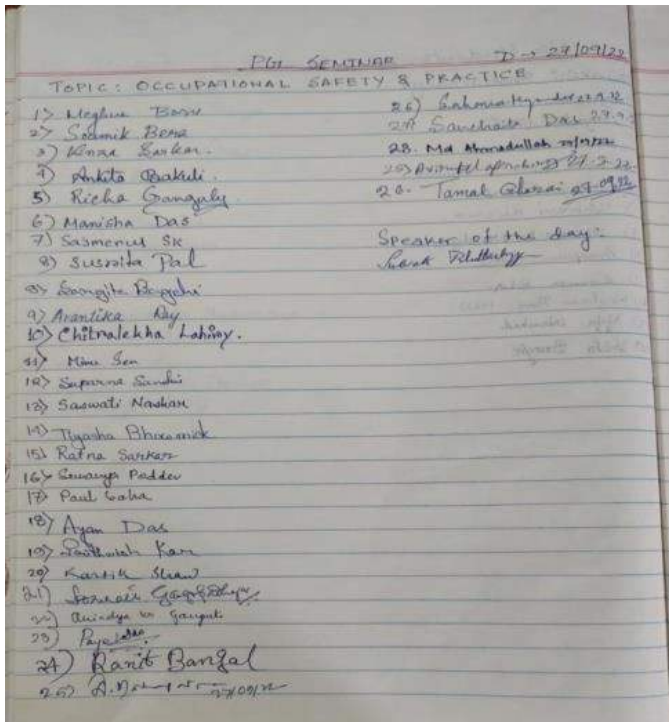 PG SEMINAR D → 27/09/22
TOPIC : OCCUPATIONAL SAFETY & PRACTICE
1) Meghna Basu
2) Soumik Bera
3) Sarkar.
4) Ankita Bakuli.
5) Richa Ganguly
6) Manisha Das
7) Sasmenus Sk
8) Susmita Pal
8) Sangita Bagchi
9) Avantika Ray
10) Chitralekha Lahiry.
11) Minu Sen
12) Suparna Sandhi
13) Saswati Naskar
14) Tiyasha Bhowmick
15) Ratna Sarkar
16) Poddar
17) Paul Saha
18) Ayan Das
19) Kar
20) Kartik Shaw
21)
22) Anindya Ganguli
23) Payel Das
24) Ranit Bangal
25) 27/09/22
26) 27.9.22
27) Sanchaita Das 27.9.
28. Md Ahmadullah 27/09/22
29) 27.9.22
20. Tamal Ghorai 27.09.22
Speaker of the day :